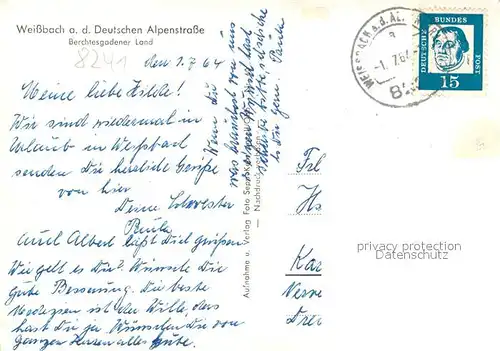 Weißbach a. d. Deutschen Alpenstraße
Berchtesgadener Land
8241
den 1.7.64
Meine liebe Hilde!
Wir sind wiedermal in
Urlaub in Weißbach
senden Dir herzliche Grüße
von hier
Deine Schwester
Paula
Auch Albert läßt Dich grüßen
Wie geht es Dir? Wünsche Dir
gute Besserung. Die beste
Medizin ist der Wille, das
hast Du ja. Wünschen Dir von
ganzen Herzen alles gute.
Wenn Du
was brauchst von uns
schreibe bitte, schicke
es Dir gern Paula
Aufnahme u. Verlag Foto
— Nachdruck
WEISSBACH a.d. AL
a
-1. 7.64
82
DEUTSCHE
BUNDES
POST
15
Frl
Ha
Kar
Nerve
privacy protection
Datenschutz